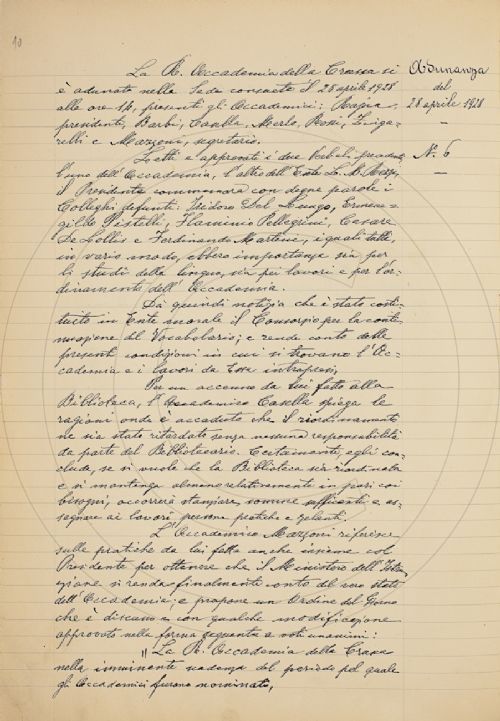 10
La R. Accademia della Crusca si
è adunata nella Sede consueta il 28 aprile 1928
alle ore 14, presenti gli Accademici: Rajna,
presidente, Barbi, Casella, Merlo, Rossi, Zinga-
relli e Mazzoni, segretario.
Adunanza
del
28 aprile 1928
N.º 6
Letti e approvati i due Verbali precedenti,
l'uno dell'Accademia, l'altro dell'Ente
il Presidente commemora con degne parole i
Colleghi defunti: Isidoro Del Lungo, Ermene-
gildo Pistelli, Flaminio Pellegrini, Cesare
De Lollis e Ferdinando Martini, i quali tutti,
in vario modo, ebbero importanza sia per
li studi della lingua, sia pei lavori e per l'or-
dinamento dell'Accademia.
Dà quindi notizia che è stato costi-
tuito in Ente morale il Consorzio per la conti-
nuazione del Vocabolario; e rende conto delle
presenti condizioni in cui si trovano l'Ac-
cademia e i lavori da Essa intrapresi.
Per un accenno da lui fatto alla
Biblioteca, l'Accademico Casella spiega le
ragioni onde è accaduto che il riordinamento
ne sia stato ritardato senza nessuna responsabilità
da parte del Bibliotecario. Certamente, egli con-
clude, se si vuole che la Biblioteca sia riordinata
e si mantenga almeno relativamente in pari coi
bisogni, occorrerà stanziare somme sufficienti e as-
segnare ai lavori persone pratiche e zelanti.
L'Accademico Mazzoni riferisce
sulle pratiche da lui fatte anche insieme col
Presidente per ottenere che il Ministero dell'Istru-
zione si renda finalmente conto del vero stato
dell'Accademia; e propone un Ordine del Giorno
che è discusso e con qualche modificazione
approvato nella forma seguente a voti unanimi:
"La R. Accademia della Crusca
nella imminente scadenza del periodo pel quale
gli Accademici furono nominati,